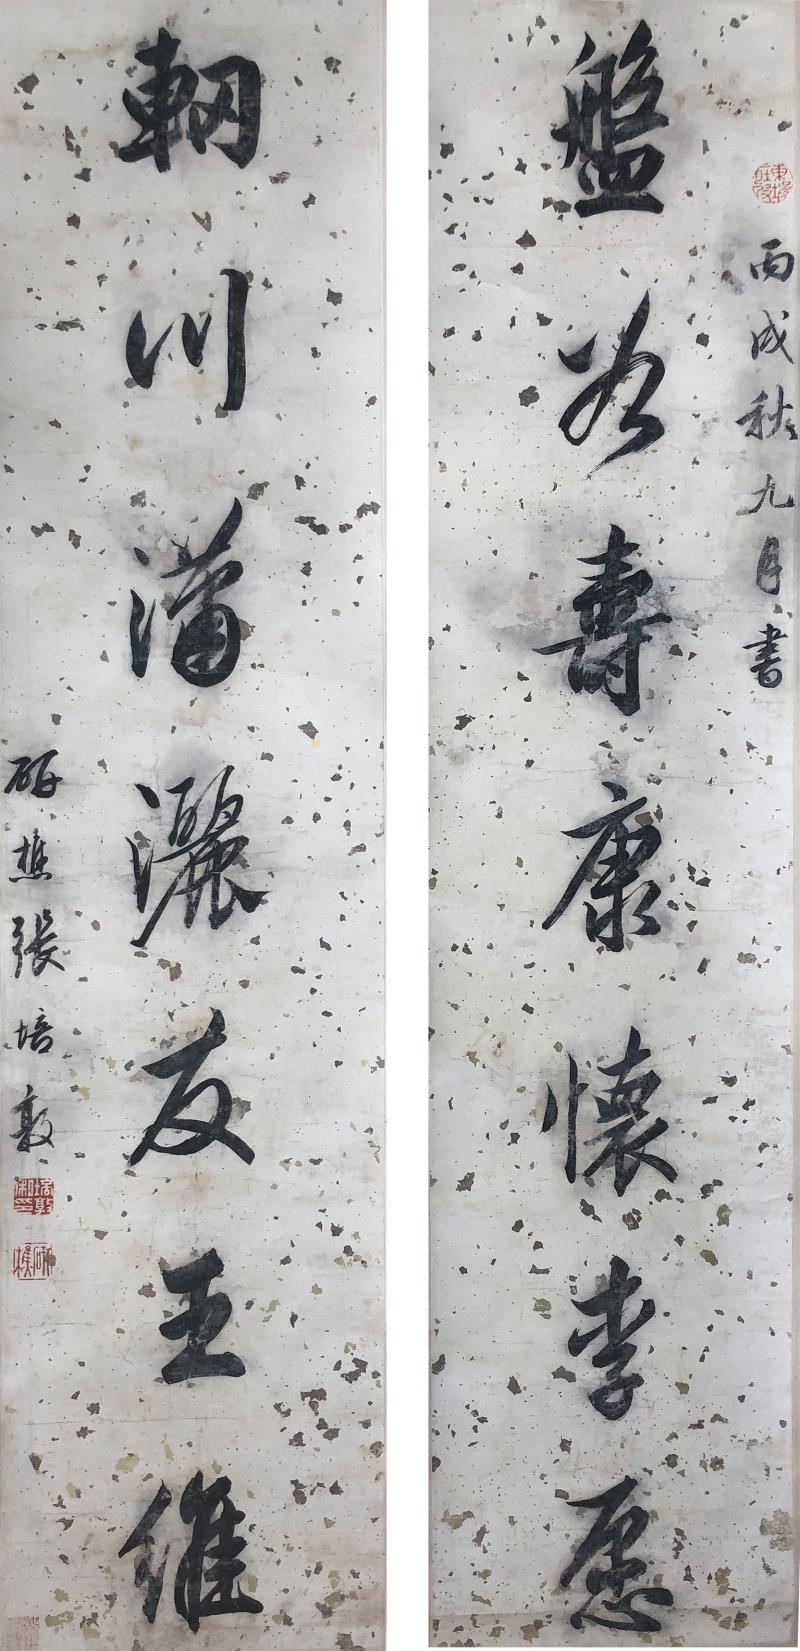 丙戌秋九月書
盤谷壽康懷李愿
輞川瀟灑友王維
研樵張培敦
研樵